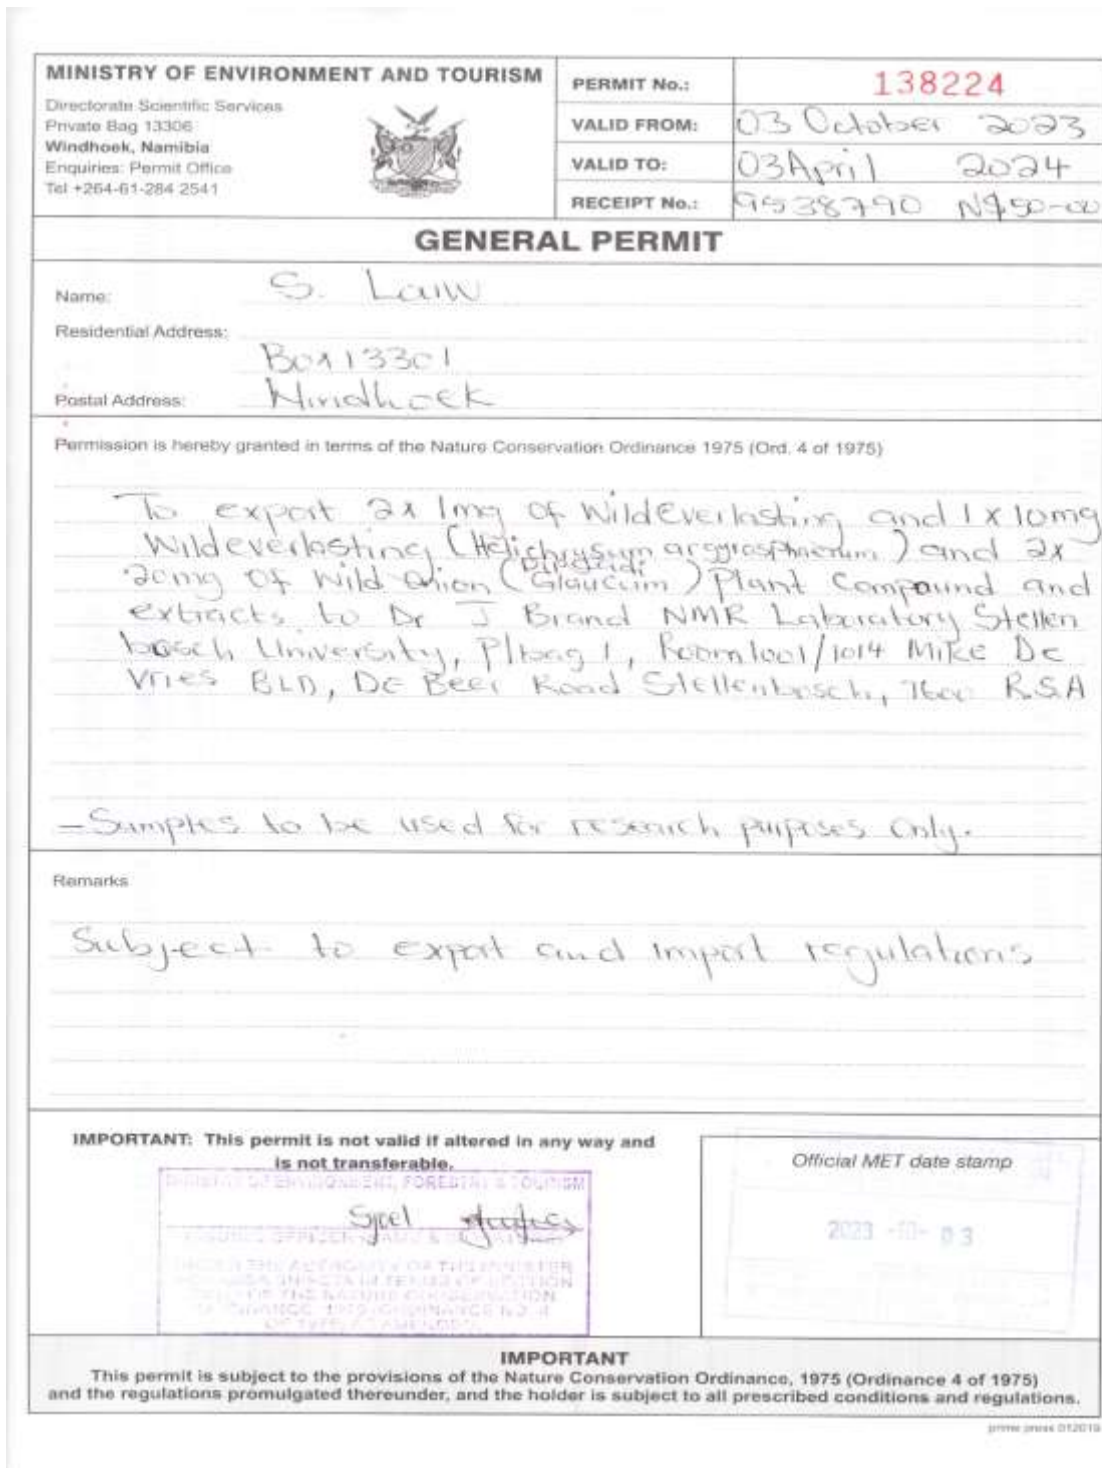 MINISTRY OF ENVIRONMENT AND TOURISM
Directorate Scientific Services
Private Bag 13306
Windhoek, Namibia
Enquiries: Permit Office
Tel +264-61-284 2541
PERMIT No.: 138224
VALID FROM: 03 October 2023
VALID TO: 03 April 2024
RECEIPT No.: 9538790 N$50-00
GENERAL PERMIT
Name: S. Louw
Residential Address:
Box 13301
Postal Address: Windhoek
Permission is hereby granted in terms of the Nature Conservation Ordinance 1975 (Ord. 4 of 1975)
To export 2x 1mg of Wild Everlasting and 1 x 10mg
Wildeverlasting (Helichrysum argyrosphaerum) and 2x
20mg of Wild Onion (Dipcadi Glaucum) Plant Compound and
extracts to Dr J Brand NMR Laboratory Stellen
bosch University, P/bag 1, Room 1001/1014 Mike De
Vries BLD, De Beer Road Stellenbosch, 7600 R.S.A
- Samples to be used for research purposes only.
Remarks
Subject to export and import regulations
IMPORTANT: This permit is not valid if altered in any way and
is not transferable.
MINISTRY OF ENVIRONMENT, FORESTRY & TOURISM
Official MET date stamp
2023 -10- 03
IMPORTANT
This permit is subject to the provisions of the Nature Conservation Ordinance, 1975 (Ordinance 4 of 1975)
and the regulations promulgated thereunder, and the holder is subject to all prescribed conditions and regulations.
prime press 012019